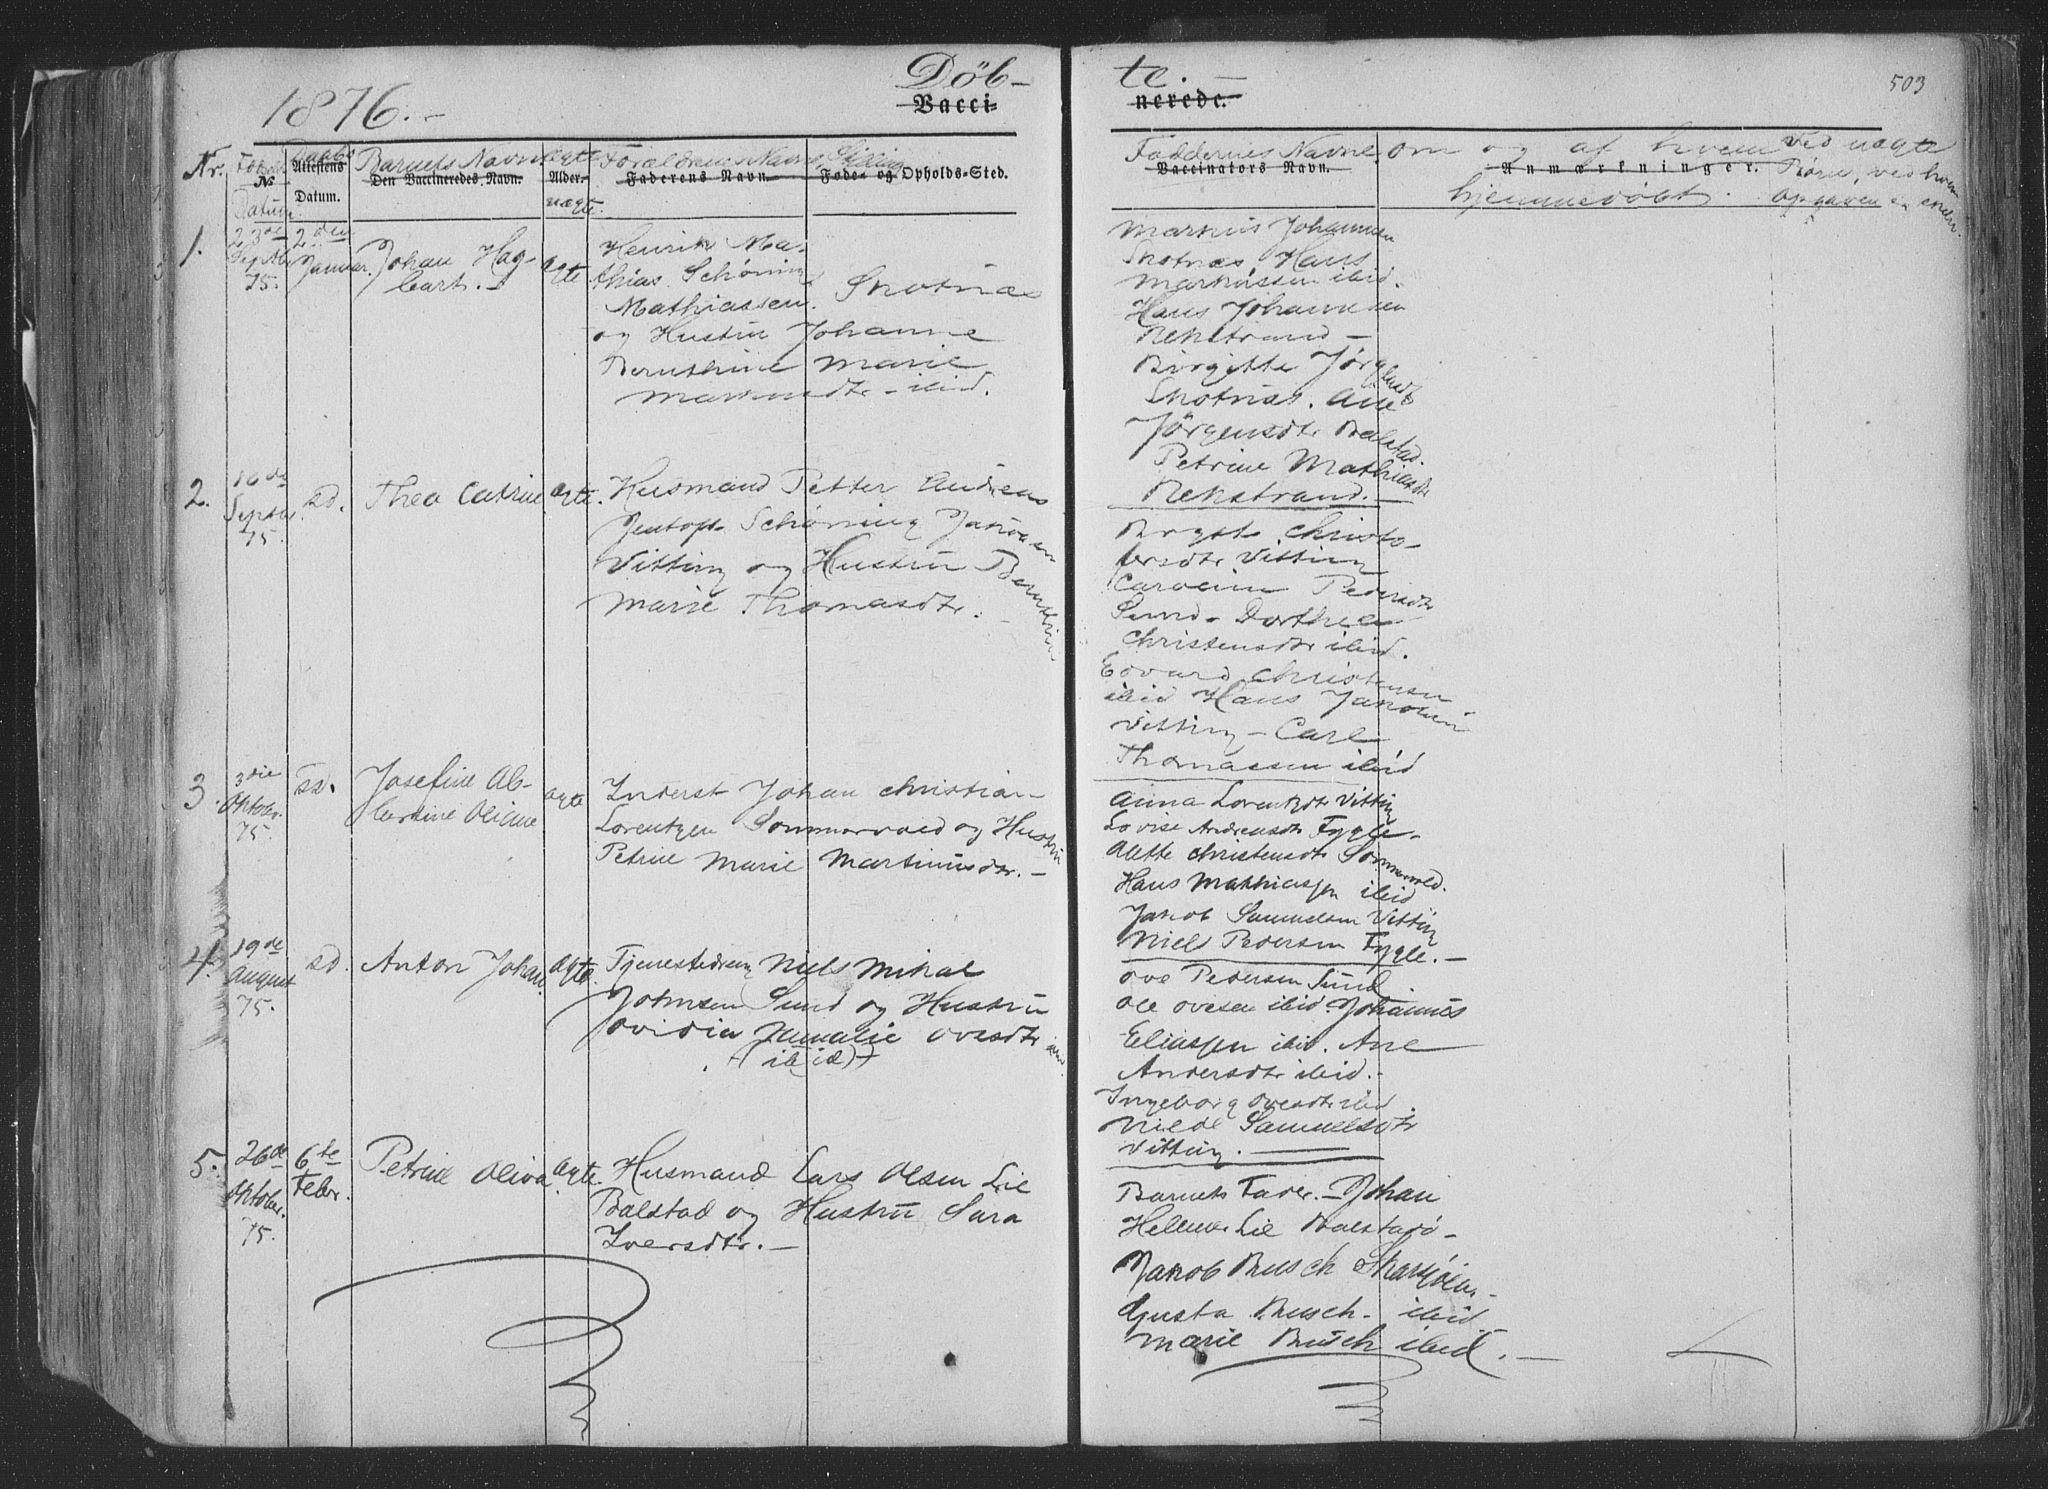 1876.
Döb-
te.
503
Vacci-
nerede.
Nr.
Datum
Daabs
Barnets Navn
ægte
uægte.
Forældrenes Navn, Stilling
Faddernes Navne,
om og af hvem
hjemmedöbt.
Ved uægte
Börn, ved hvem
Opgaven er
No
Attestens
Datum.
Den Vaccineredes Navn.
Alder.
Faderens Navn.
Føde- og Opholds-Sted.
Vaccinators Navn.
Anmærkninger.
1.
23de
Septbr
75.
2den
Januar.
Johan Hag-
bart.
ægte
Henrik Ma-
thias Schöning
Mathiassen
Skotnæs
og Hustru Johanne
Bernthine Marie
Markusdtr - ibid.
Markus Johannesen
Skotnæs Hans
Markussen ibid.
Hans Johannesen
Rekstrand -
Birgitte
Skotnæs. Ane
Jörgensdtr Balstad.
Petrine Mathiasdtr
Rekstrand.
2.
16de
Septbr.
75.
sd.
Thea Catrine
ægte.
Husmand Petter Andreas
Jentoft Schöning Jakobsen
Vitting og Hustru Bernthine
Marie Thomasdtr.
Christo-
fersdtr Vitting
Pedersdtr
Sund - Dorthea
Christensdtr ibid.
Edvard Christensen
ibid Hans Jakobsen
Vitting - Carl
Thomassen ibid
3.
3die
Oktober.
75.
sd.
Josefine Al-
bertine Oliane
ægte
Inderst Johan Christian
Lorentzen Sommarvold og Hustru
Petrine Marie Martinusdtr.
Anna Lorentzdtr Vitting
Lovise Andreasdtr Fygle-
Alette Christensdtr Sommarvold.
Hans Mathiassen ibid
Jakob Samuelsen Vitting
Niels Pedersen Fygle.
4.
19de
August
75.
sd.
Anton Johan
ægte.
Tjenestedreng Niels Mikal
Johnsen Sund og Hustru
Ovidia Amalie Ovesdtr
(ibid)
Ove Pedersen Sund
Ole Ovesen ibid. Johannes
Eliassen ibid. Ane
Andersdtr ibid.
Ingeborg Ovesdtr ibid
Samuelsdtr
Vitting.
5.
26de
Oktober.
75.
6te
Febr.
Petrine Oliva
ægte.
Husmand Lars Olsen Lie
Balstad og Hustru Sara
Iversdtr.
Barnets Fader. - Johan
Lie Balstad -
Jakob Busch
Gusta Busch - ibid
Marie Busch ibid.